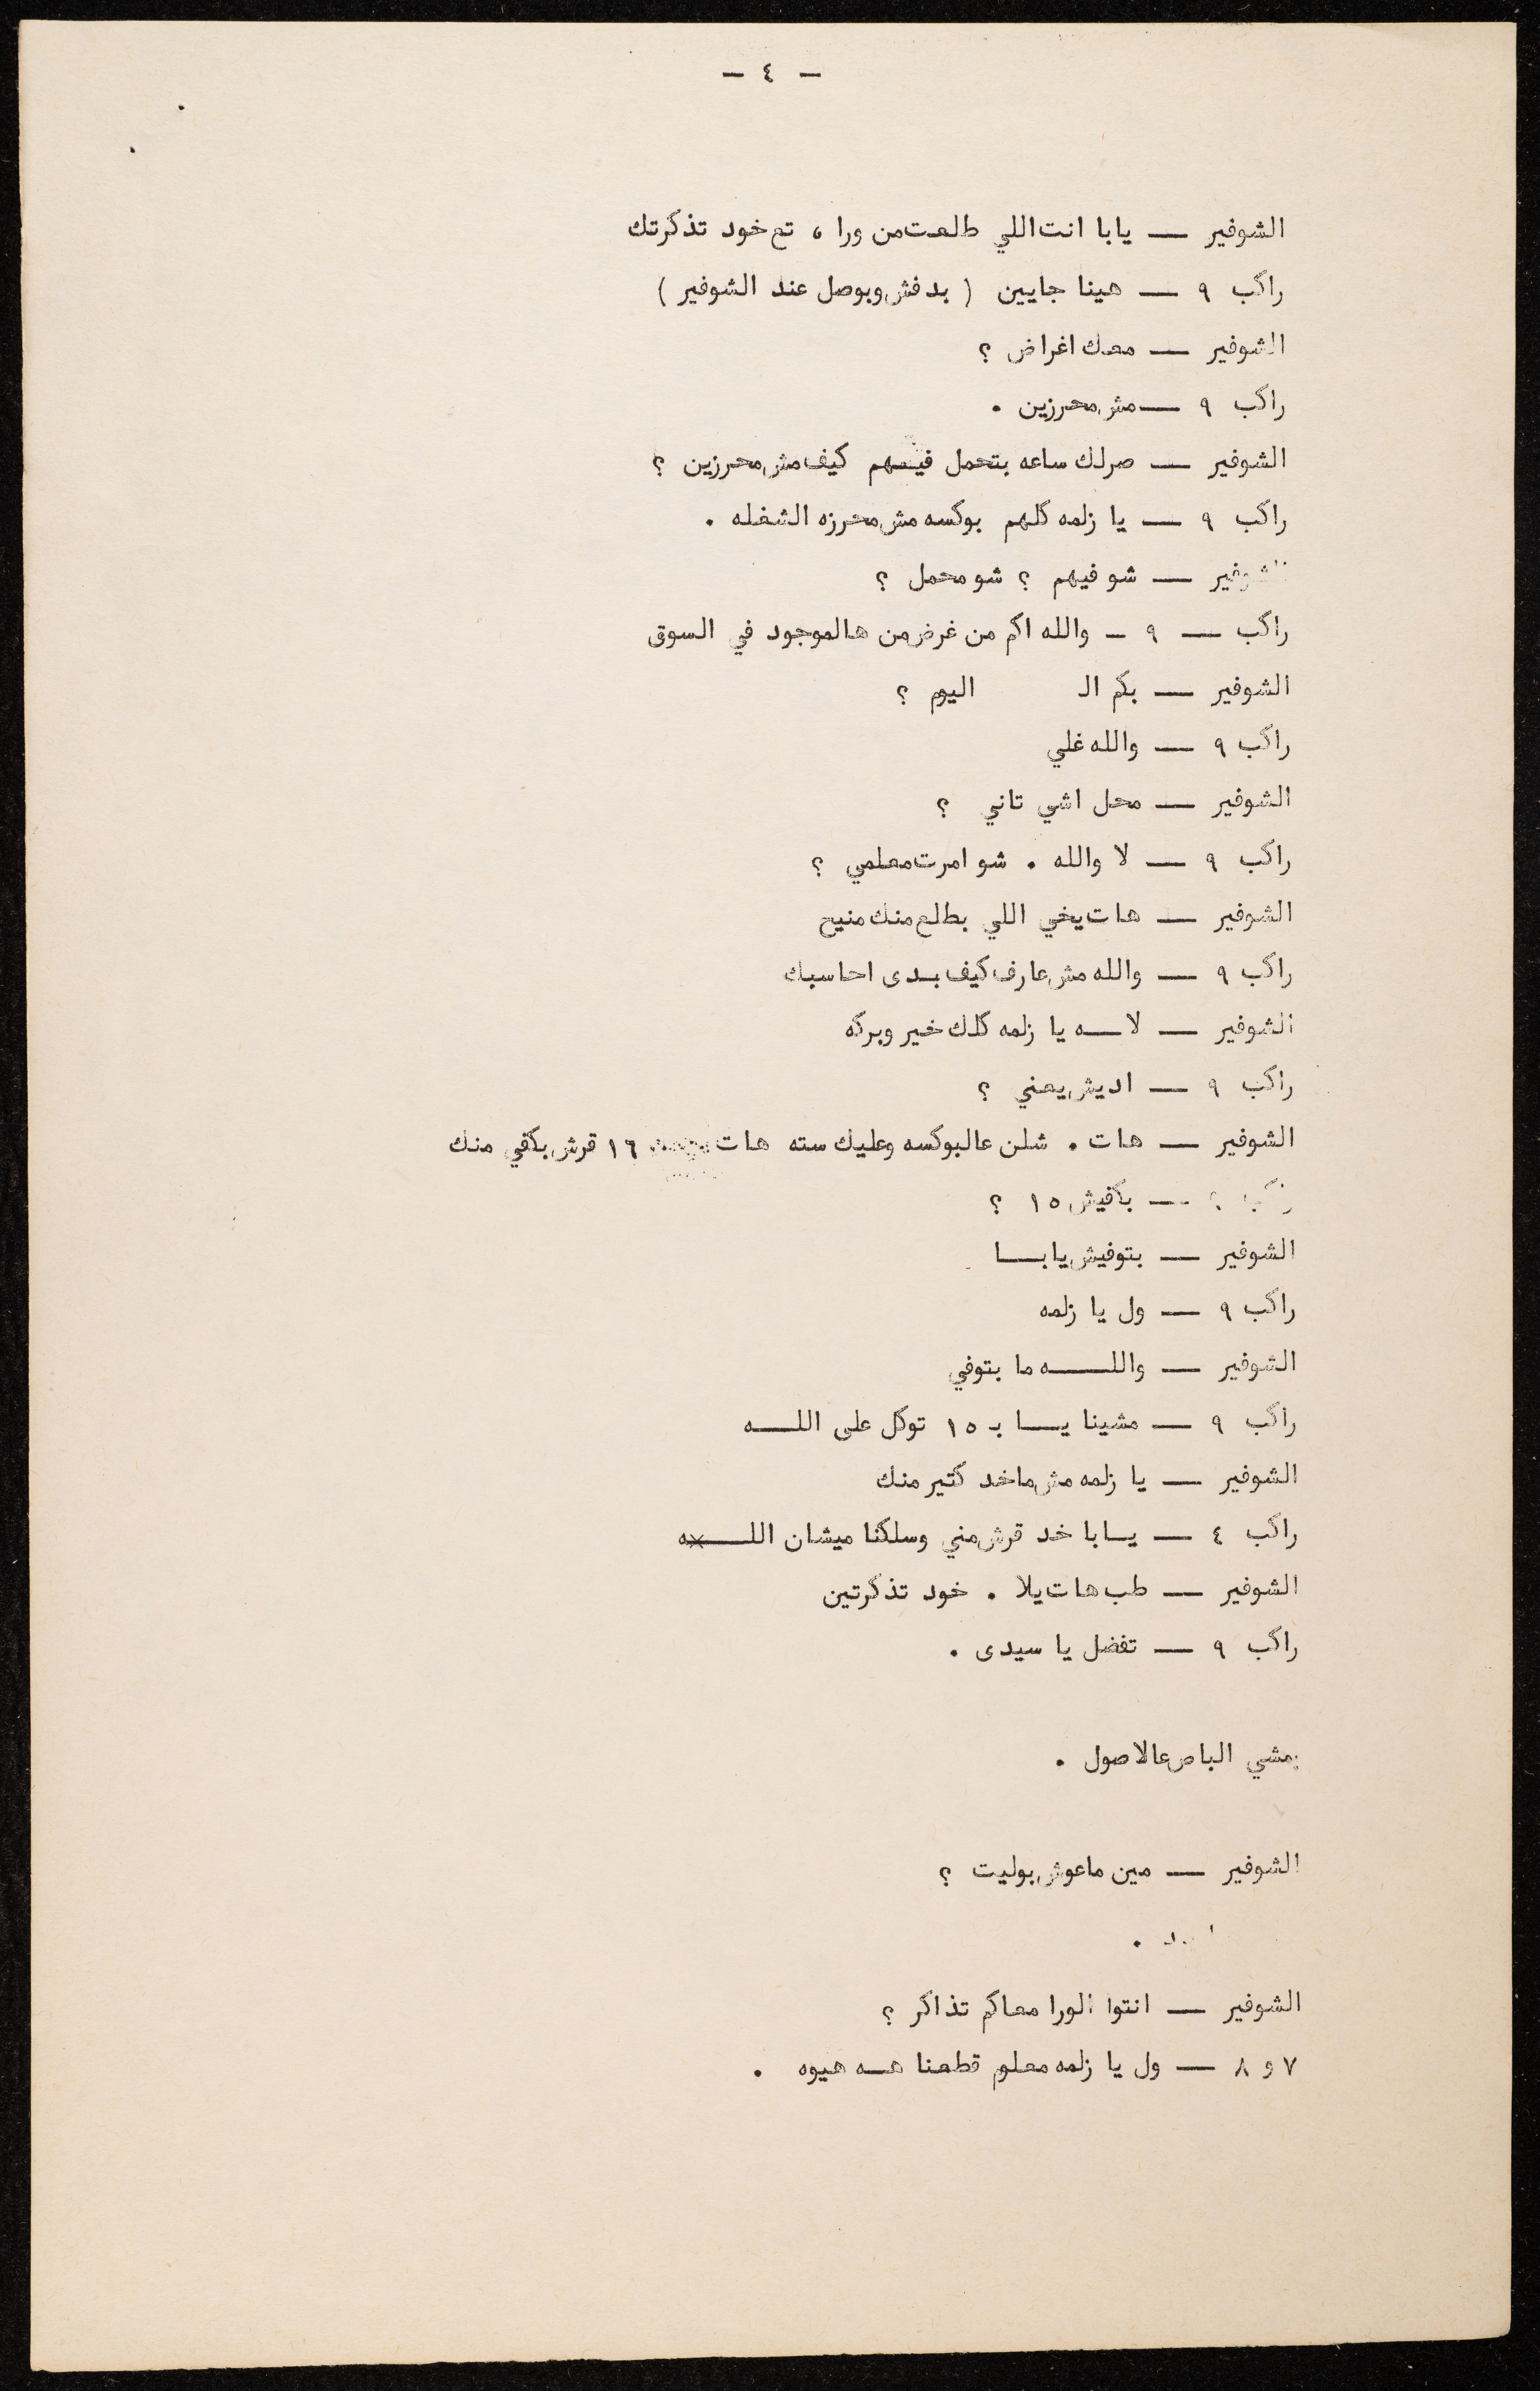 - ٤ -
الشوفير — يابا انت اللي طلعت من ورا ، تع خود تذكرتك
راكب ٩ — هينا جايين ( بدفش وبوصل عند الشوفير )
الشوفير — معك اغراض ؟
راكب ٩ — مش محرزين .
الشوفير — صرلك ساعه بتحمل فيهم كيف مش محرزين ؟
راكب ٩ — يا زلمه كلهم بوكسه مش محرزه الشغله .
الشوفير — شو فيهم ؟ شو محمل ؟
راكب — ٩ - والله اكم من غرض من هالموجود في السوق
الشوفير — بكم الـ اليوم ؟
راكب ٩ — والله غلي
الشوفير — محل اشي تاني ؟
راكب ٩ — لا والله . شو امرت معلمي ؟
الشوفير — هات يخي اللي بطلع منك منيح
راكب ٩ — والله مش عارف كيف بدى احاسبك
الشوفير — لاـــه يا زلمه كلك خير وبركه
راكب ٩ — اديش يعني ؟
الشوفير — هات . شلن عالبوكسه وعليك سته هات ١٦ قرش بكفي منك
— بكفيش ١٥ ؟
الشوفير — بتوفيش يابـــا
راكب ٩ — ول يا زلمه
الشوفير — واللـــــه ما بتوفي
راكب ٩ — مشينا يـــا بـ ١٥ توكل على اللـــه
الشوفير — يا زلمه مش ماخد كتير منك
راكب ٤ — يـابا خد قرش مني وسلكنا ميشان اللــــه
الشوفير — طب هات يلا . خود تذكرتين
راكب ٩ — تفضل يا سيدى .
بمشي الباص عالاصول .
الشوفير — مين ماعوش بوليت ؟
الشوفير — انتوا الورا معاكم تذاكر ؟
٧ و ٨ — ول يا زلمه معلوم قطعنا هـه هيوه .